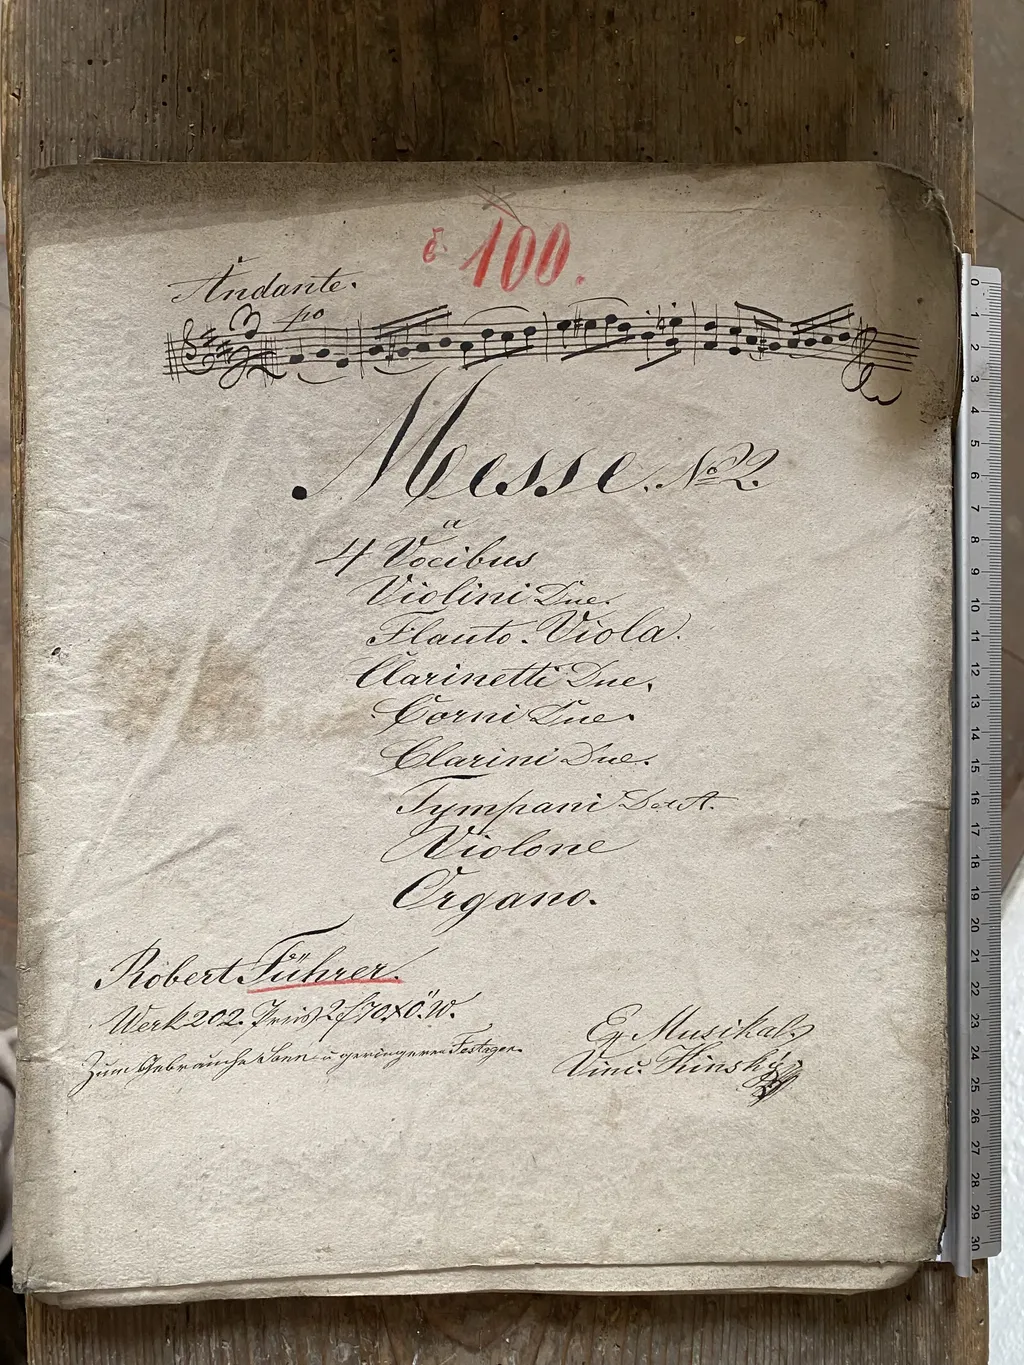 č. 100.
Andante.
po
Messe. No 2.
a
4 Vocibus
Violini Due.
Flauto. Viola.
Clarinetti Due.
Corni Due.
Clarini Due.
Tympani D et A.
Violone
Organo.
Robert Führer.
Werk 202. Preis 2 f 70 x ö. W.
Zum Gebrauche eben u geringeren Festagen
Ex Musikal.
Vinc. Kinský
0
1
2
3
4
5
6
7
8
9
10
11
12
13
14
15
16
17
18
19
20
21
22
23
24
25
26
27
28
29
30